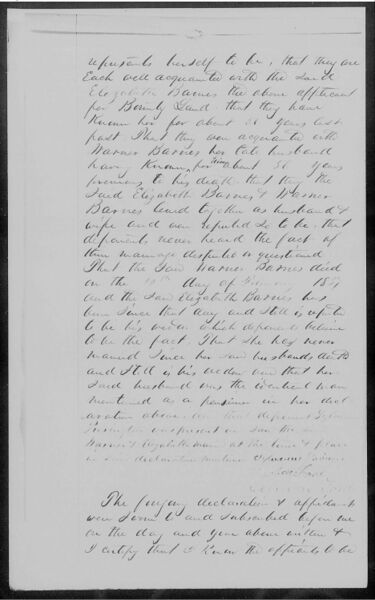 represents herself to be, that they are
Each well acquainted with the said
Elizabeth Barnes the above applicant
for Bounty Land that they have
Known her for about 38 years last
past That they were acquainted with
Warner Barnes her late husband
having Known him for about 30 years
previous to his death that they the
said Elizabeth Barnes & Warner
Barnes lived together as husband &
wife and were reputed so to be. that
deponents never heard the fact of
their marriage disputed or questioned
That the said Warner Barnes died
on the day of 18
and the said Elizabeth Barnes has
been since that day and still is reputed
to be his widow which deponents believe
to be the fact. That she has never
married since her said husbands death
and still is his widow and that her
said husband was the identical man
mentioned as a pensioner in her decl
aration above. that deponent
was present and saw the said
Warner & Elizabeth at the time &
in said declaration
The forgoing declaration & affidavit
were sworn to and subscribed before me
on the day and year above written &
I certify that I Know the affiants to be